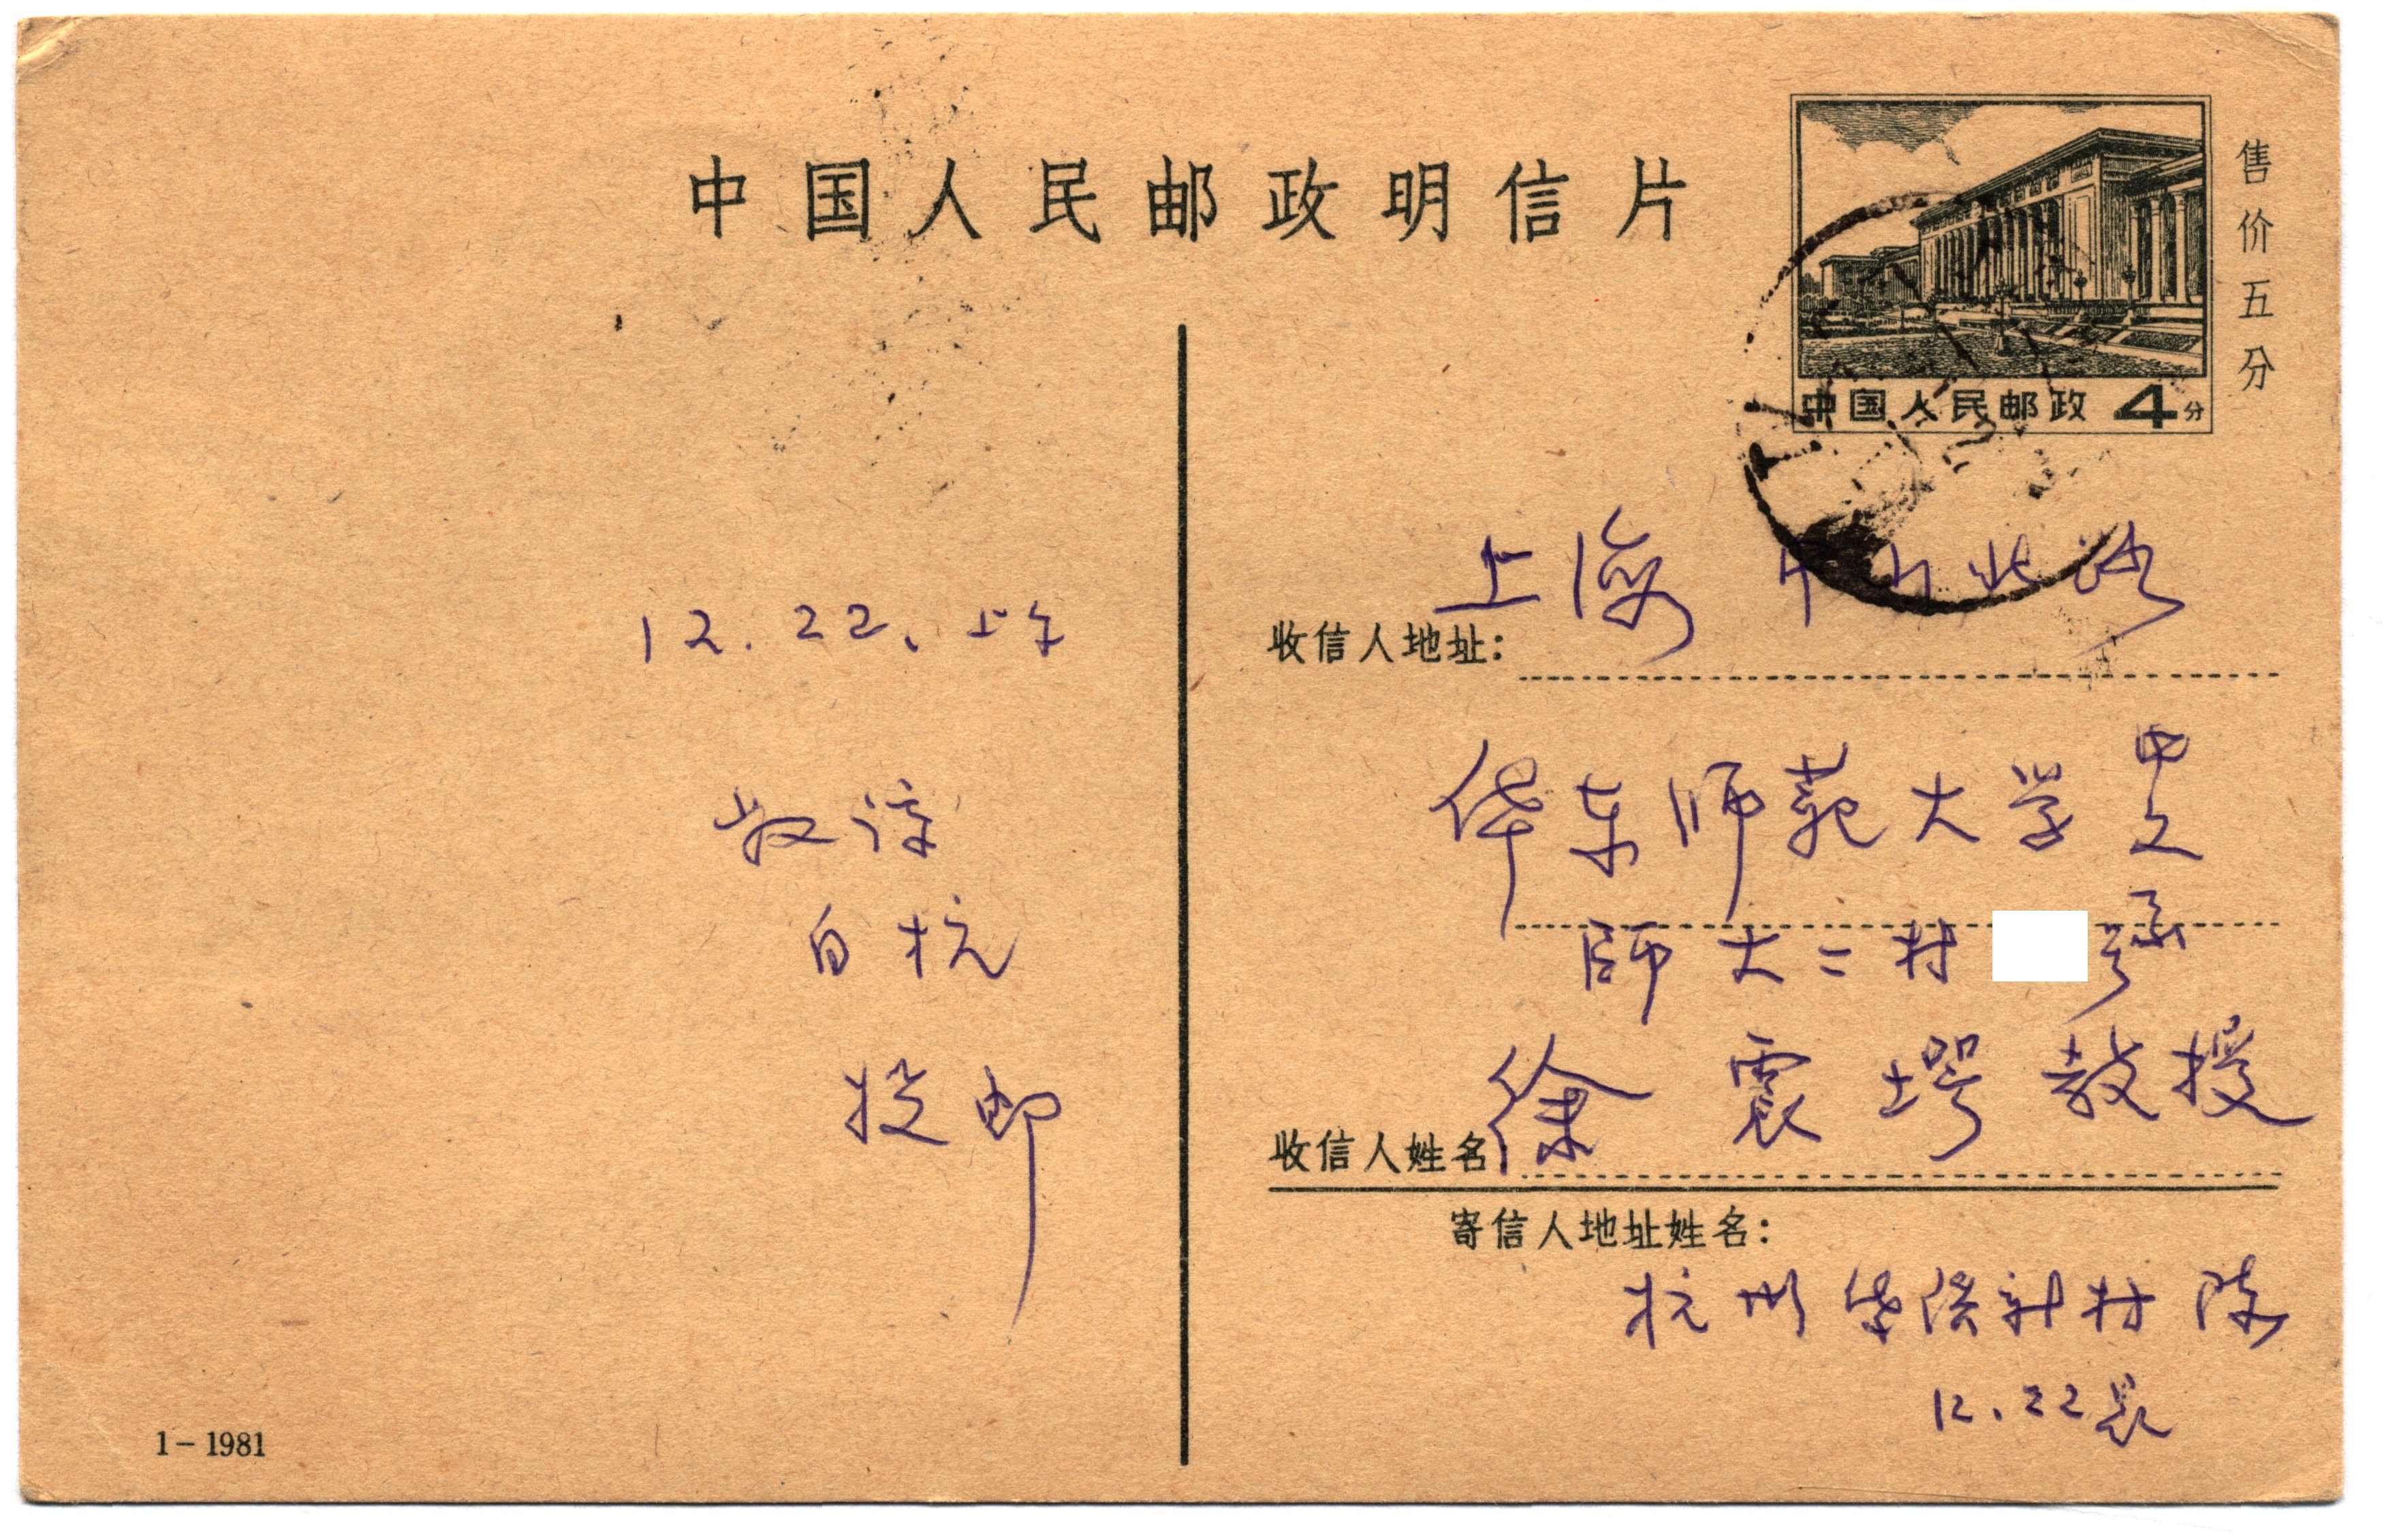 中国人民邮政明信片
售价五分
中国人民邮政 4分
12.22、上午
敬
自杭
投邮
1-1981
上海 中山北路
收信人地址:
华东师范大学 中文系
師大二村 号
徐震堮教授
收信人姓名
寄信人地址姓名:
杭州 新村 陈
12.22晨